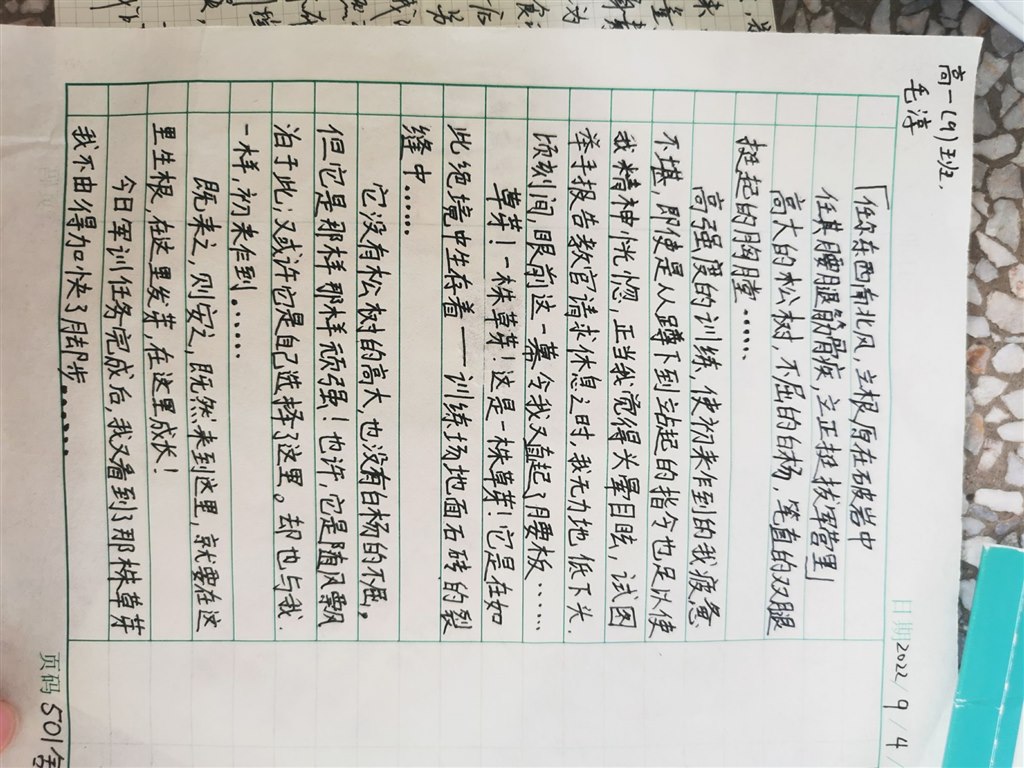 高一(9)班.
毛淳
日期 2022/9/4
「任你东西南北风,立根原在破岩中
任其腰腿筋骨疲,立正挺拔军营里」
高大的松树,不屈的白杨,笔直的双腿
挺起的胸膛……
高强度的训练,使初来乍到的我疲惫
不堪,即使是从蹲下到站起的指令也足以使
我精神恍惚,正当我觉得头晕目眩,试图
举手报告教官请求休息之时,我无力地低下头.
顷刻间,眼前这一幕令我又直起了腰板……
草芽!一株草芽!这是一株草芽!它是在如
此绝境中生存着——训练场地面石砖的裂
缝中……
它没有松树的高大,也没有白杨的不屈,
但它是那样那样顽强!也许,它是随风飘
泊于此;又或许它是自己选择了这里。却也与我
一样,初来乍到……
既来之,则安之,既然来到这里,就要在这
里生根,在这里发芽,在这里成长!
今日军训任务完成后,我又看到了那株草芽
我不由得加快了脚步……
页码 501舍